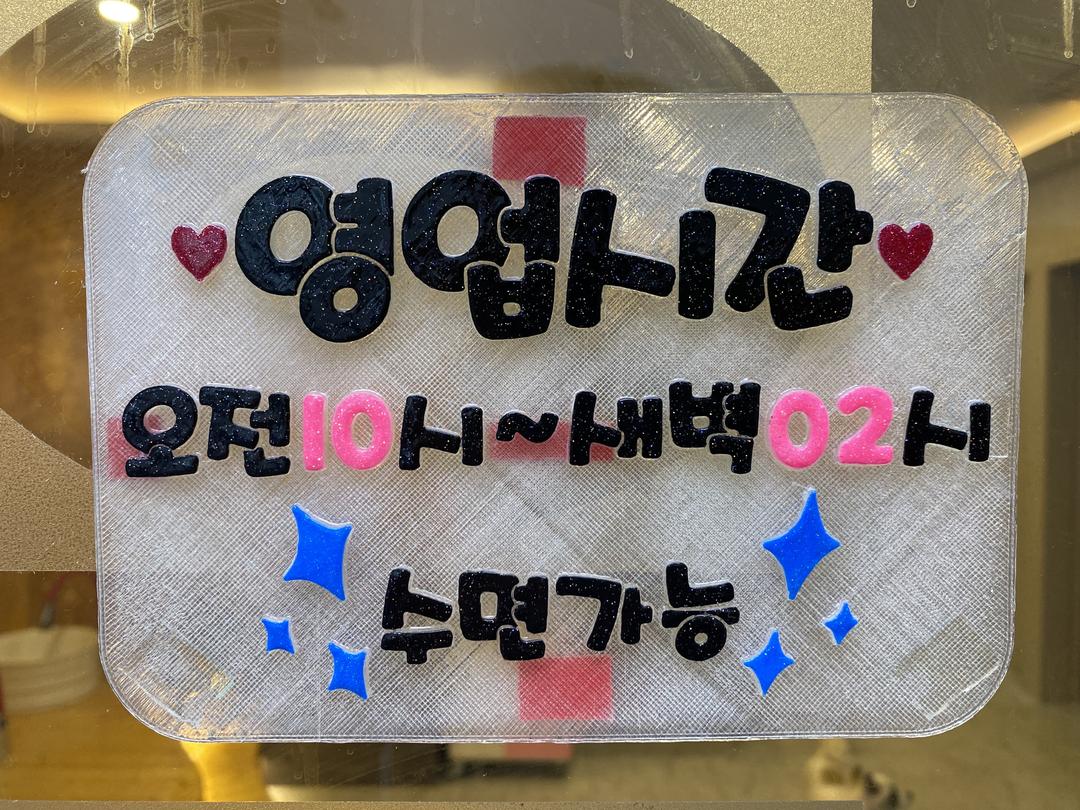 영업시간
오전10시~새벽02시
수면가능